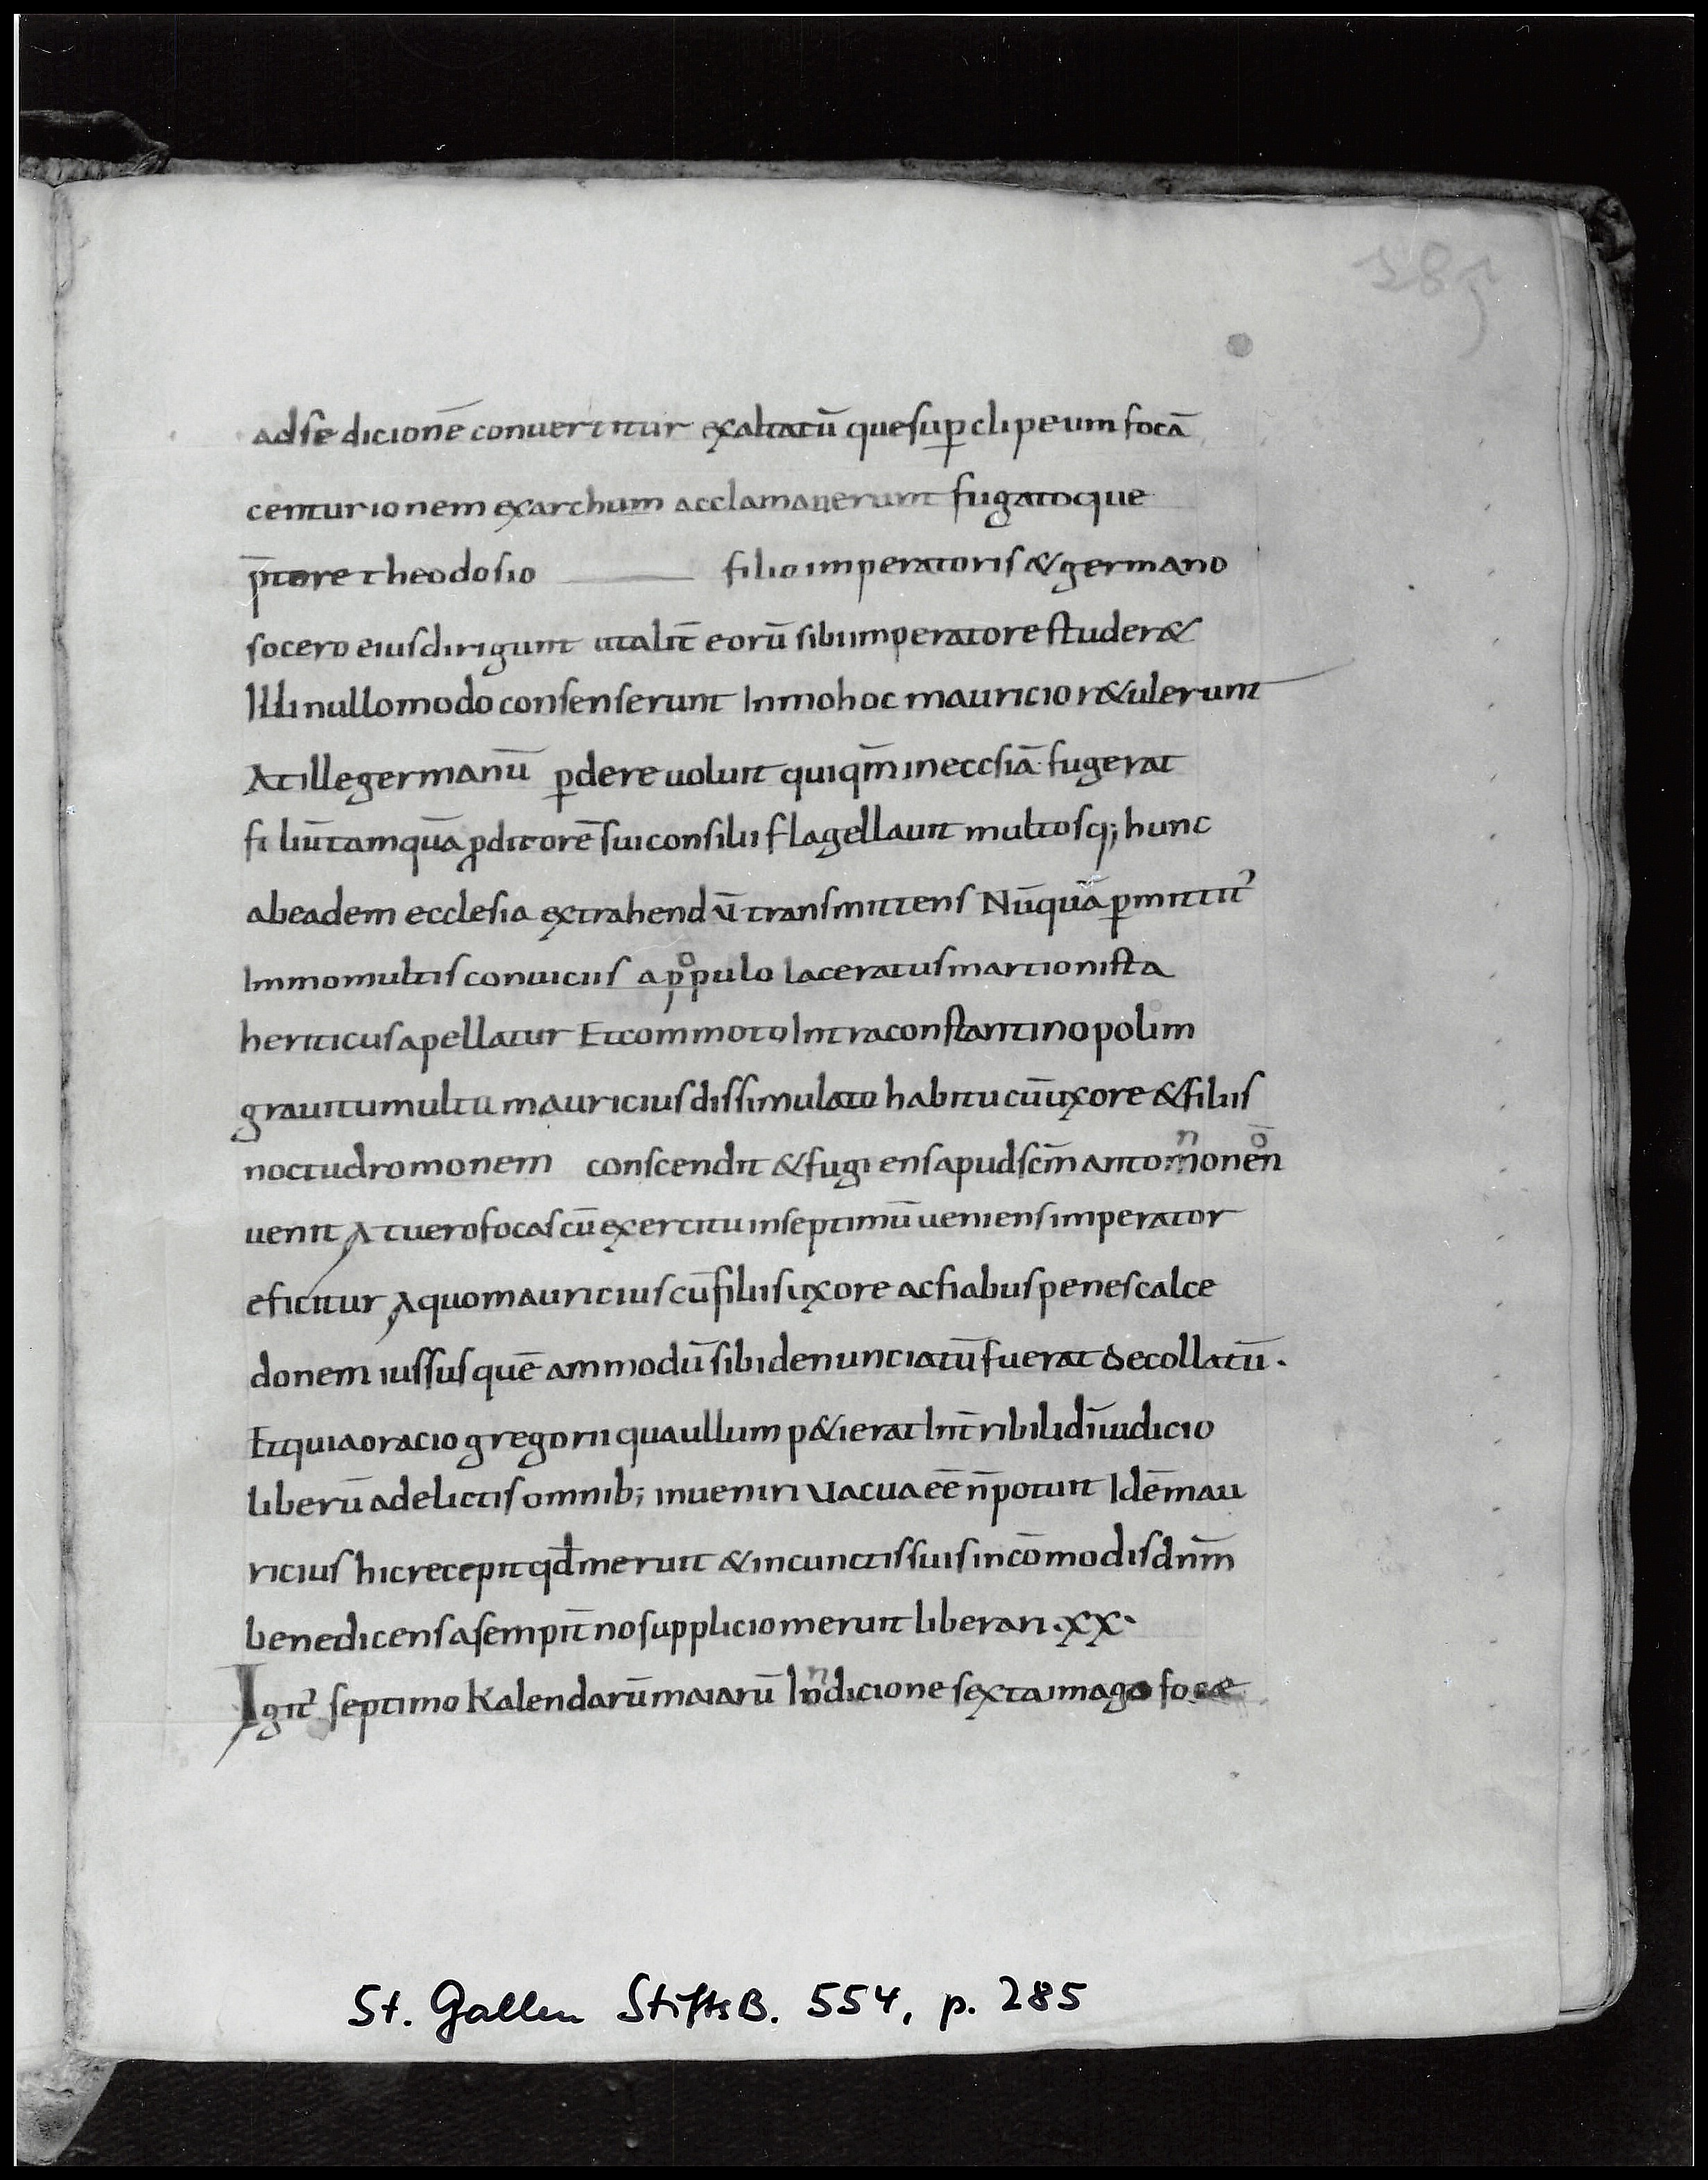 285
adsedicionē conuertitur exaltatū quesup̱ clipeum focā
centurionem exarchum acclamauerunt fugatoque
p̄tore theodosio filio imperatoris & germano
socero eius dirigunt ut alit̄ eorū sibi imperatore studer&
Illi nullomodo consenserunt Inmohoc mauricio r&ulerunt
At ille germanū p̱dere uoluit qui qm̄ in eccsiā fugerat
filiū tamquā p̱ditorē sui consilii flagellauit multosq; hunc
ab eadem ecclesia extrahendū transmittens Nūquā p̱mittit᾿
Immo multis conuiciis a pᵒpulo laceratus martionista
heriticus apellatur Et commoto Intra constantinopolim
graui tumultu mauricius dissimulato habitu cū uxore & filiis
noctu dromonem conscendit & fugiens apud scm̄ antomonen
uenit At uero focas cū exercitu in septimū ueniens imperator
eficitur A quo mauricius cū filiis uxore ac fiabus penes calce
donem iussus quē ammodū sibi denunciatū fuerat decollatū.
Et quia oracio gregorii qua ullum p&ierat Int̄ribili dī iudicio
liberū a delictis omnib; inueniri uacua eē n̄ potuit Idē mau
ricius hic recepit qđ meruit & in cunctis suis incōmodis dnm̄
benedicens a sempit̄no supplicio meruit liberari. XX.
Igit᾿ septimo Kalendarū maiarū Indicione sexta imago focae
St. Gallen StiftsB. 554, p. 285